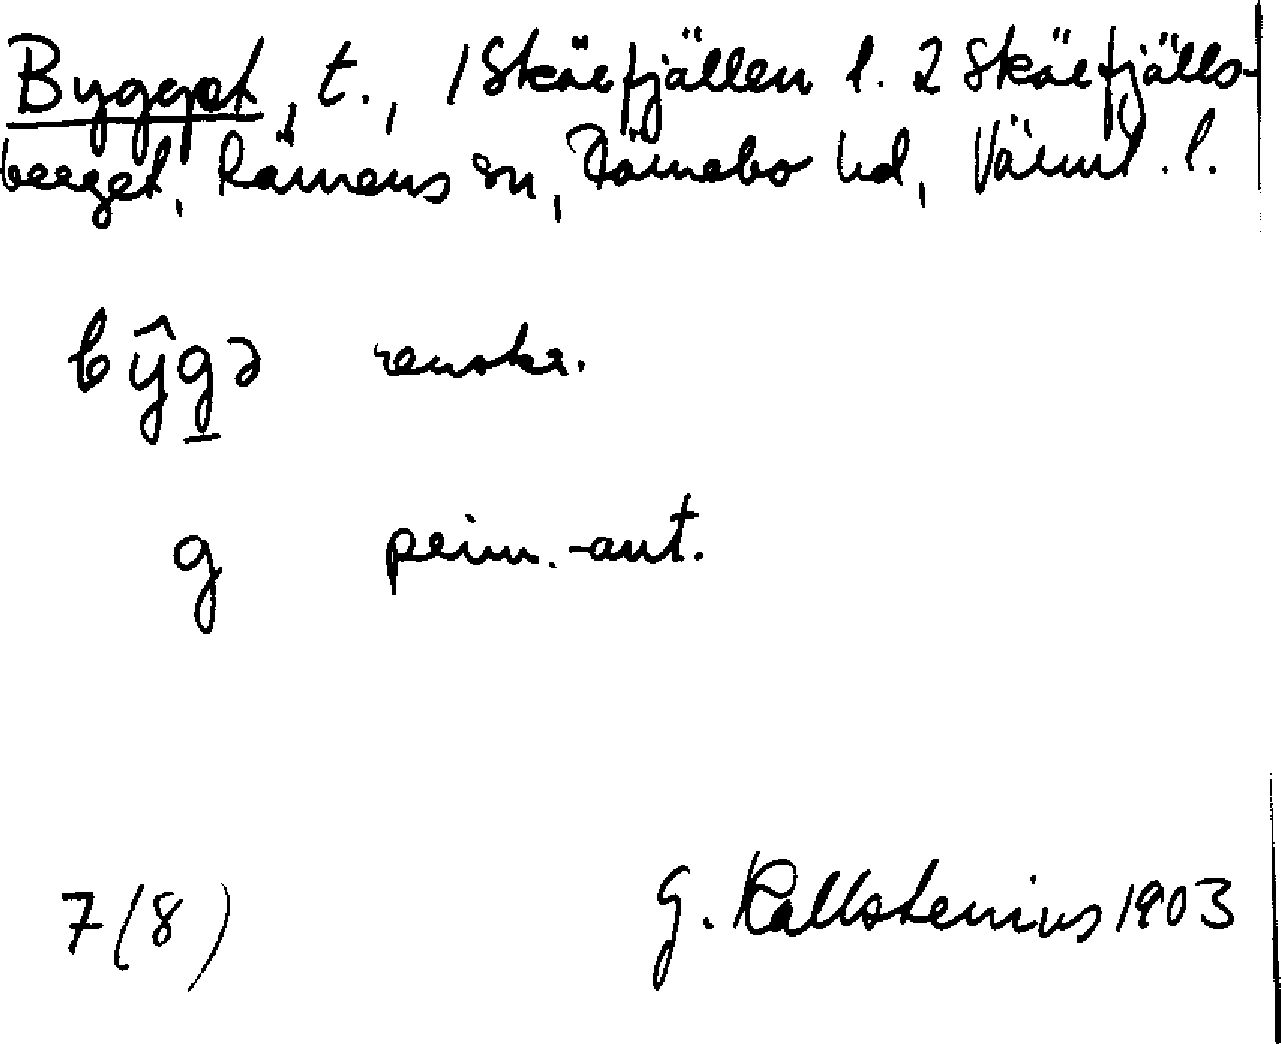 Bygget, t., 1 Skärfjällen l. 2 Skärfjälls-
berget, Rämens sn, Färnebo hd, Värml. l.
bŷg̲ə renskr.
g prim.-ant.
7(8) G. Kallstenius 1903